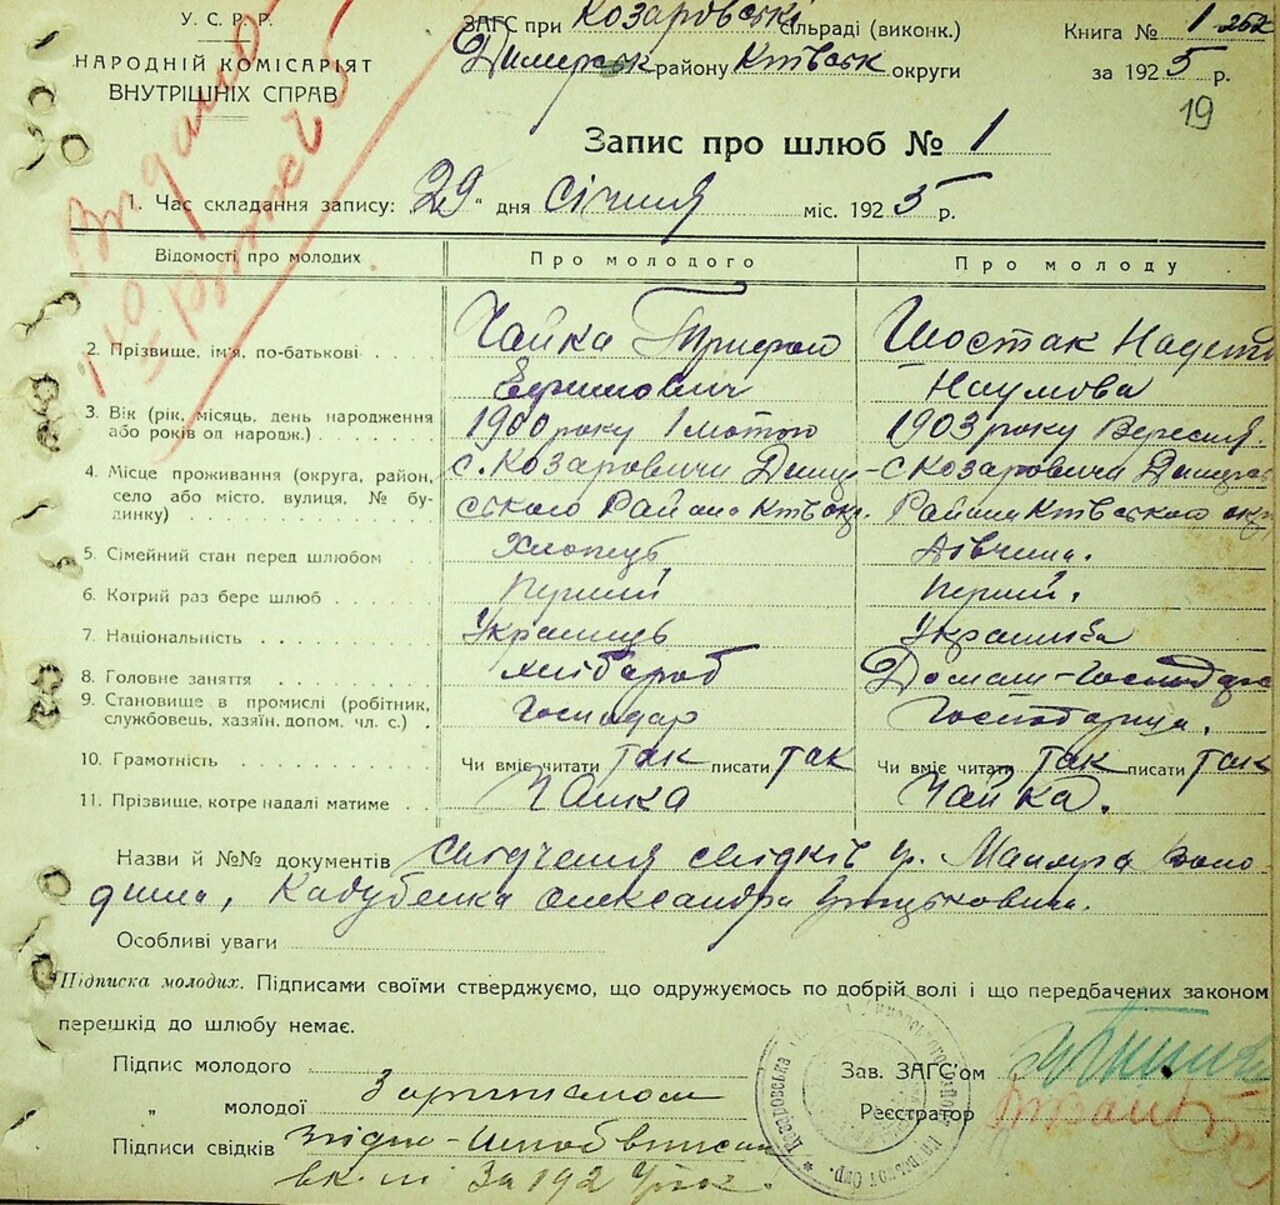 У. С. Р. Р.
НАРОДНІЙ КОМІСАРІЯТ
ВНУТРІШНІХ СПРАВ
ЗАГС при Козаровські сільраді (виконк.)
Димерськ району Київськ округи
Книга № 1 252
за 1925 р.
19
Запис про шлюб № 1
1. Час складання запису: "29" дня Січня міс. 1925 р.
Відомості про молодих
Про молодого
Про молоду
2. Прізвище, ім'я, по-батькові
Чайка Трифон
Шостак
Наумова
3. Вік (рік, місяць, день народження
або років од народж.)
1900 року 1 лютого
1903 року Вересня.
4. Місце проживання (округа, район,
село або місто, вулиця, № бу-
динку)
с. Козаровичи Димер-
ського Района Київ окр.
с Козаровичи
Района Київського окр
5. Сімейний стан перед шлюбом
Хлопець
Дівчина.
6. Котрий раз бере шлюб
Перший
Перший.
7. Національність
Украинець
Украинка
8. Головне заняття
хлібороб
9. Становище в промислі (робітник,
службовець, хазяїн, допом. чл. с.)
Господар
Господарица.
10. Грамотність
Чи вміє читати так писати так
Чи вміє читати так писати так
11. Прізвище, котре надалі матиме
Чайка
Чайка.
Назви й №№ документів Свідченя свідків гр.
Кадубенка Олександра
Особливі уваги
Підписка молодих. Підписами своїми стверджуємо, що одружуємось по добрій волі і що передбачених законом
перешкід до шлюбу немає.
Підпис молодого
" молодої
Підписи свідків
Зав. ЗАГС'ом
Реєстратор
За 192